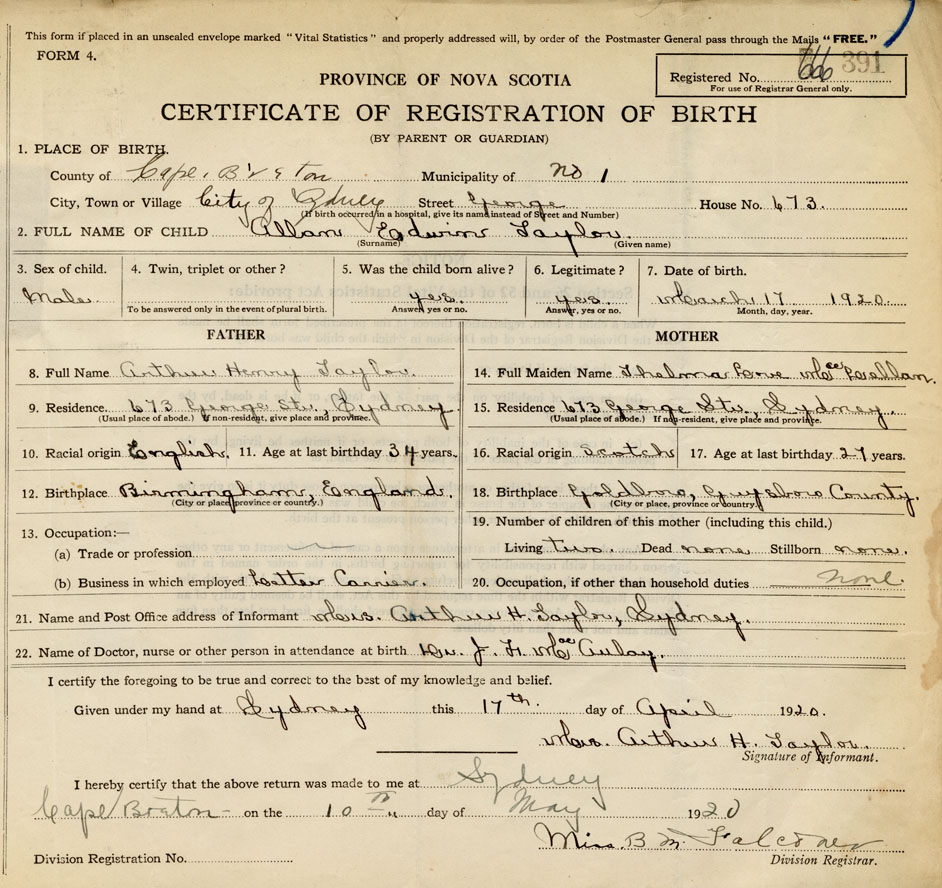 This form if placed in an unsealed envelope marked "Vital Statistics" and properly addressed will, by order of the Postmaster General pass through the Mails "FREE."
FORM 4.
PROVINCE OF NOVA SCOTIA
Registered No. 391
For use of Registrar General only.
CERTIFICATE OF REGISTRATION OF BIRTH
(BY PARENT OR GUARDIAN)
1. PLACE OF BIRTH.
County of Cape Breton Municipality of No 1
City, Town or Village City of Sydney Street George House No. 673.
(If birth occurred in a hospital, give its name instead of Street and Number)
2. FULL NAME OF CHILD Allan Edwin Taylor.
(Surname) (Given name)
3. Sex of child. 4. Twin, triplet or other? 5. Was the child born alive? 6. Legitimate? 7. Date of birth.
Male yes. yes. March 17 1920.
To be answered only in the event of plural birth. Answer, yes or no. Answer, yes or no. Month, day, year.
FATHER MOTHER
8. Full Name Arthur Henry Taylor. 14. Full Maiden Name Thelma Love MacLellan.
9. Residence. 673 George Str., Sydney. 15. Residence 673 George Str., Sydney.
(Usual place of abode.) If non-resident, give place and province. (Usual place of abode.) If non-resident, give place and province.
10. Racial origin English. 11. Age at last birthday 34 years. 16. Racial origin Scotch 17. Age at last birthday 27 years.
12. Birthplace Birmingham, England. 18. Birthplace Goldboro, Guysboro County.
(City or place, province or country.) (City or place, province or country)
13. Occupation:— 19. Number of children of this mother (including this child.)
(a) Trade or profession Living two. Dead none Stillborn none.
(b) Business in which employed Letter Carrier. 20. Occupation, if other than household duties none.
21. Name and Post Office address of Informant Mrs. Arthur H. Taylor, Sydney.
22. Name of Doctor, nurse or other person in attendance at birth Dr. J. F. MacAulay.
I certify the foregoing to be true and correct to the best of my knowledge and belief.
Given under my hand at Sydney this 17th. day of April 1920.
Mrs. Arthur H. Taylor.
Signature of Informant.
I hereby certify that the above return was made to me at Sydney
Cape Breton on the 10th day of May 1920
Miss. B M Falconer
Division Registration No. Division Registrar.